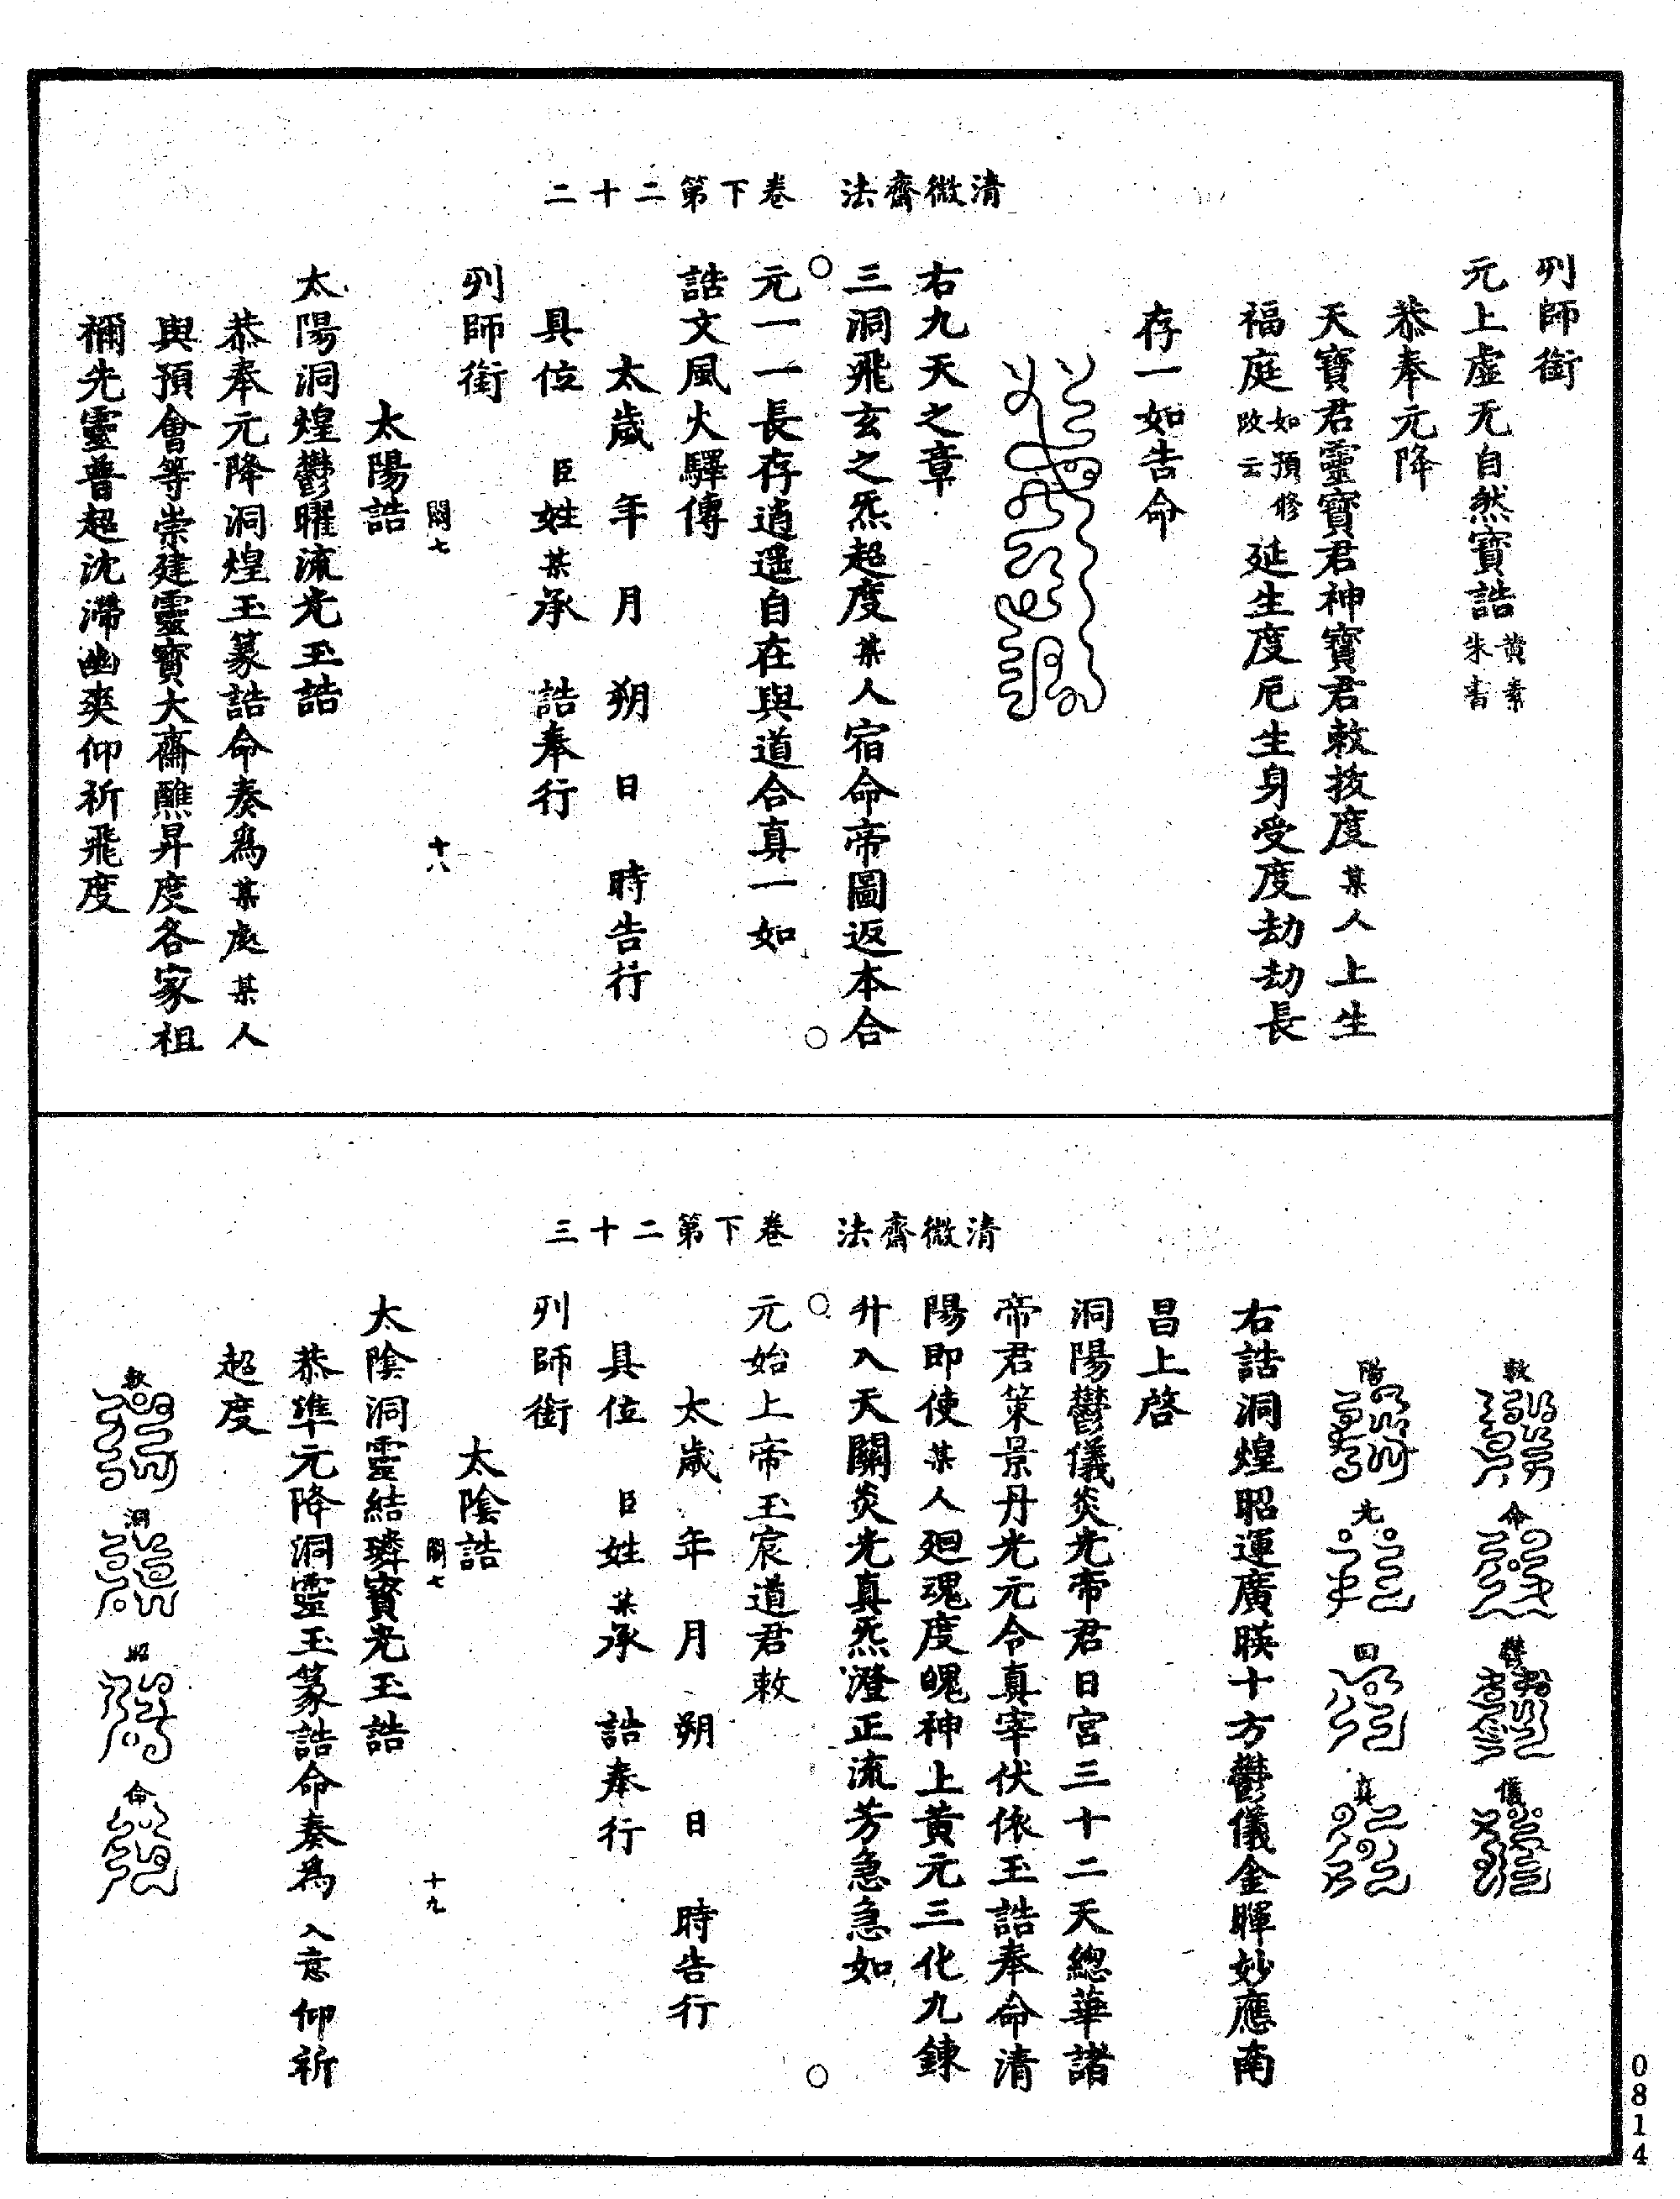 清微齋法　卷下第二十二
列師銜
元上虛无自然寶誥黃素朱書
恭奉元降
天寶君靈寶君神寶君敕拔度某人上生
福庭如預修改云延生度厄生身受度劫劫長
存一如告命
右九天之章
三洞飛玄之炁超度某人宿命帝圖返本合
元一一長存逍遥自在與道合真一如
誥文風火驛傳
太歲　年　月　朔　日　時告行
具位　臣姓某承　誥奉行
列師銜
闕七　十八
太陽誥
太陽洞煌鬱曜流光玉誥
恭奉元降洞煌玉篆誥命奏為某處某人
與預會等崇建靈寶大齋醮昇度各家祖
禰先靈普超沈滯幽爽仰祈飛度
清微齋法　卷下第二十三
敕　命　鬱　儀
陽　光　回　真
右誥洞煌昭運廣暎十方鬱儀金暉妙應南
昌上啓
洞陽鬱儀炎光帝君日宮三十二天總華諸
帝君策景丹光元令真宰伏依玉誥奉命清
陽即使某人廻魂度魄神上黃元三化九鍊
升入天關炎光真炁澄正流芳急急如
元始上帝玉宸道君敕
太歲　年　月　朔　日　時告行
具位　臣姓某承　誥奉行
列師銜
太陰誥
闕七　十九
太陰洞靈結璘寶光玉誥
恭準元降洞靈玉篆誥命奏為入意仰祈
超度
敕　洞　昭　命
0814